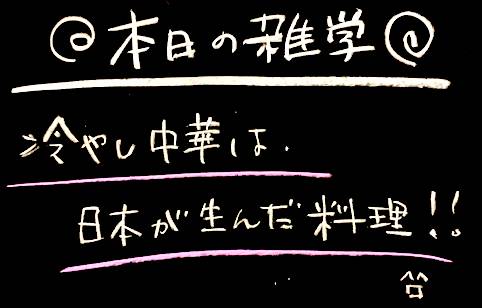 本日の雑学
冷やし中華は、
日本が生んだ料理!!